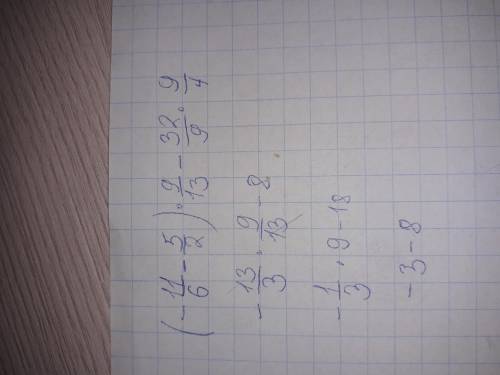 (-11/6 - 5/2) · 9/13 - 32/9 · 9/4
-13/3 · 9/13 - 8
-1/3 · 9 - 18
-3 - 8